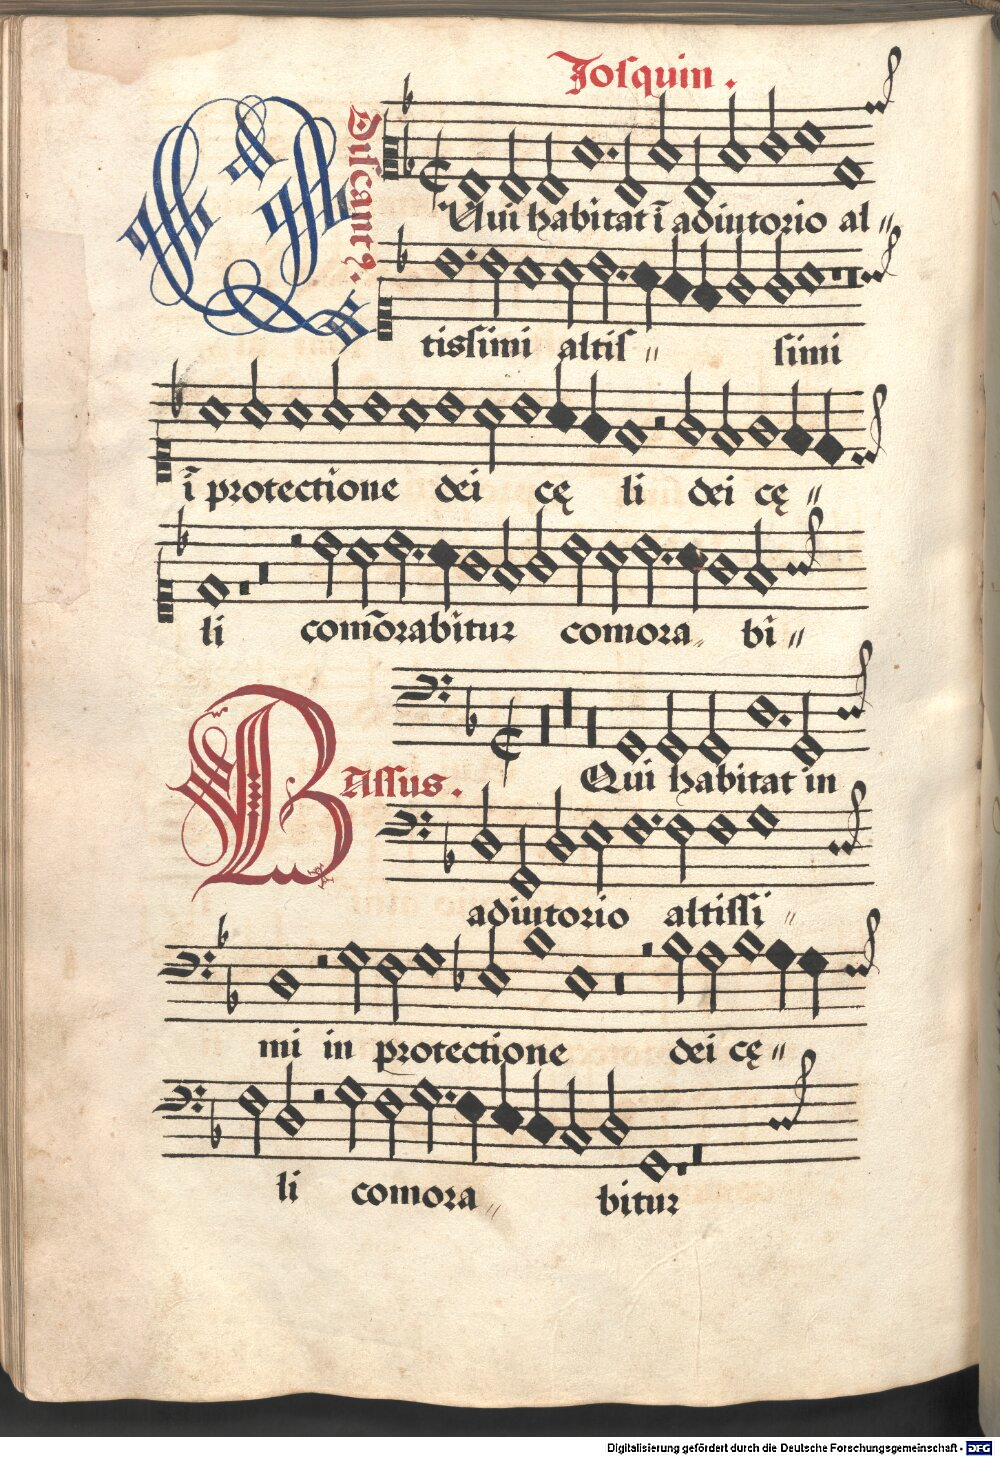 Josquin.
Discantꝰ.
Qui habitat ī adiutorio al〃
tissimi altis〃 simi
ī protectione dei cę li dei cę〃
li com̄orabitur comora〃 bi〃
Bassus.
Qui habitat in
adiutorio altissi〃
mi in protectione dei cę〃
li comora〃 bitur
Digitalisierung gefördert durch die Deutsche Forschungsgemeinschaft - DFG